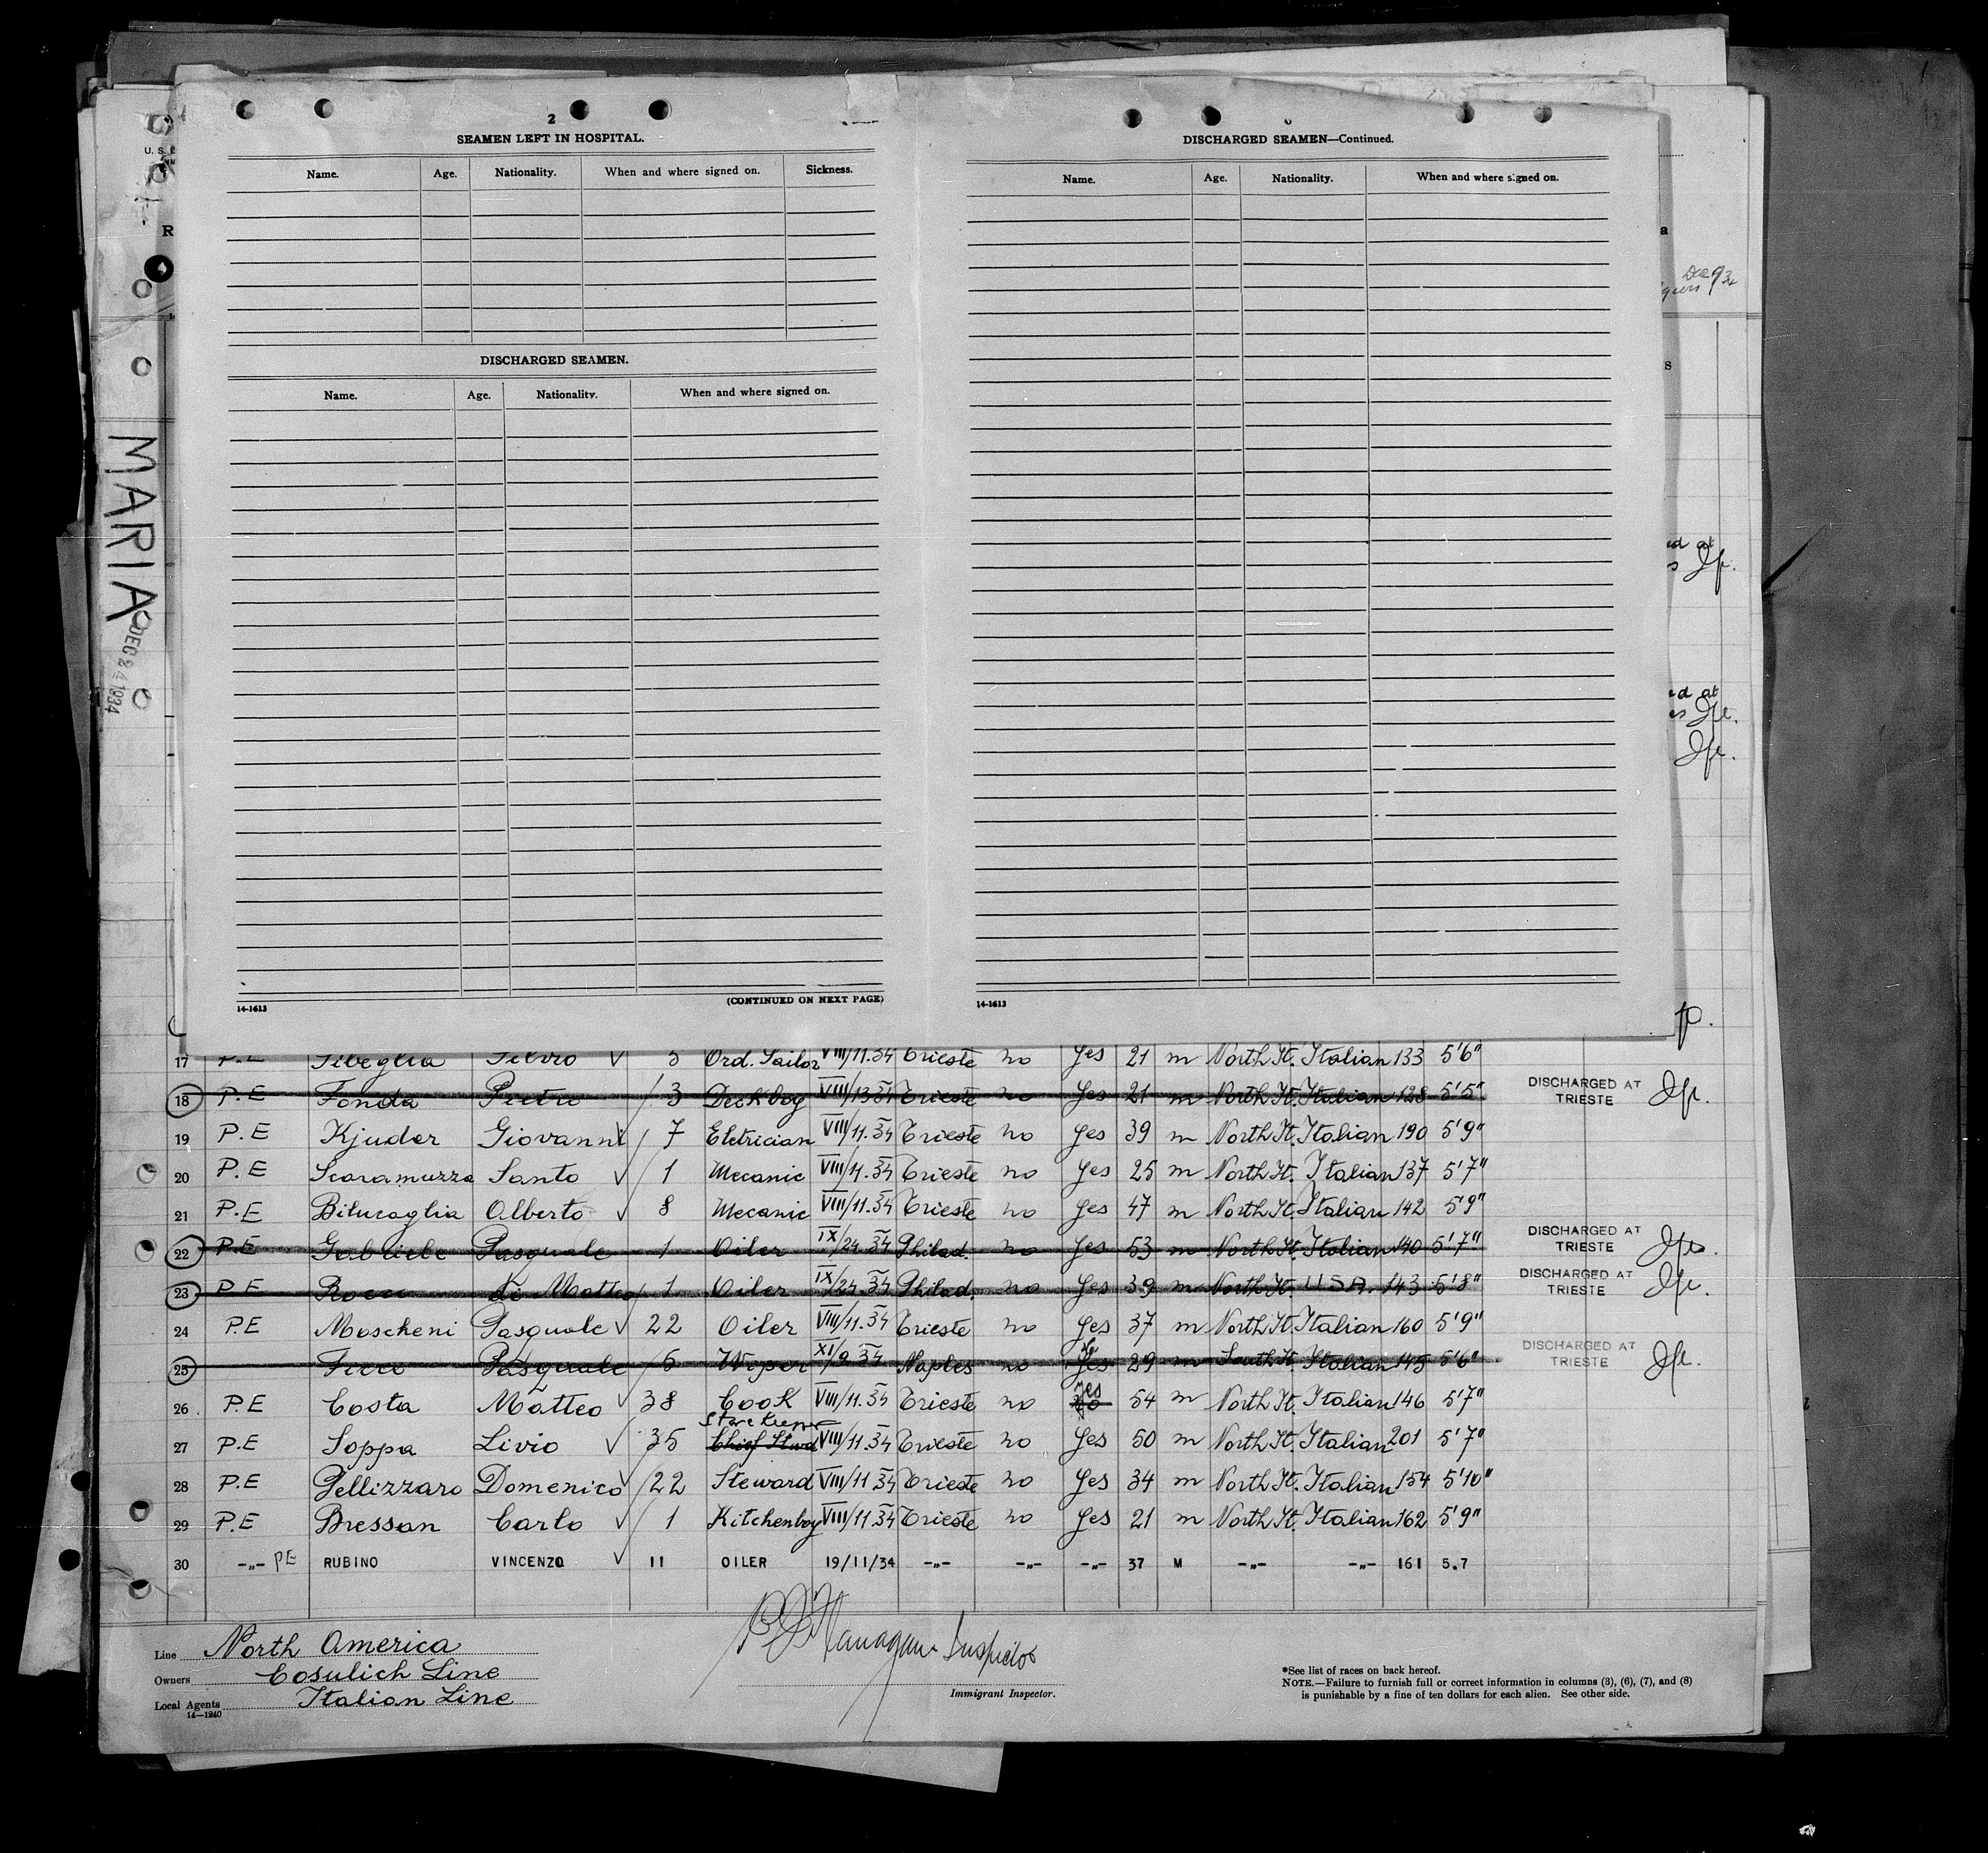 2
SEAMEN LEFT IN HOSPITAL.
Name. Age. Nationality. When and where signed on. Sickness.
DISCHARGED SEAMEN.
Name. Age. Nationality. When and where signed on.
14-1613 (CONTINUED ON NEXT PAGE)
DISCHARGED SEAMEN—Continued.
Name. Age. Nationality. When and where signed on.
14-1613
U. S.
R
MARIA
DEC 24 1934
a
s
ed at
ed at
17 P.E Silvio √ 5 Ord. Sailor VIII/11.34 Trieste no yes 21 m North It. Italian 133 5'6"
18 P.E Fonda Pietro / 3 Deckboy VIII/13 34 Trieste no yes 21 m North It. Italian 128 5'5" DISCHARGED AT TRIESTE
19 P.E Kjuder Giovanni √ 7 Eletrician VIII/11.34 Trieste no yes 39 m North It. Italian 190 5'9"
20 P.E Scaramuzza Santo √ 1 Mecanic VIII/11.34 Trieste no yes 25 m North It. Italian 137 5'7"
21 P.E Bilucaglia Alberto √ 8 Mecanic VIII/11.34 Trieste no yes 47 m North It. Italian 142 5'9"
22 P.E Gabriele Pasquale 1 Oiler IX/24.34 Philad. no yes 53 m North It. Italian 140 5'7" DISCHARGED AT TRIESTE
23 P.E Rocco di Matteo 1 Oiler IX/24.34 Philad. no yes 39 m North It. USA. 143 5'8" DISCHARGED AT TRIESTE
24 P.E Moscheni Pasquale √ 22 Oiler VIII/11.34 Trieste no yes 37 m North It. Italian 160 5'9"
25 Pasquale 6 Wiper XI/9 34 Naples no yes 29 m South It. Italian 145 5'6" DISCHARGED AT TRIESTE
26 P.E Costa Matteo √ 38 Cook VIII/11.34 Trieste no yes 54 m North It. Italian 146 5'7"
Store Keeper
27 P.E Soppa Livio √ 35 Chief Stwd VIII/11.34 Trieste no yes 50 m North It. Italian 201 5'7"
28 P.E Pellizzaro Domenico √ 22 Steward VIII/11.34 Trieste no yes 34 m North It. Italian 154 5'10"
29 P.E Bressan Carlo √ 1 Kitchenboy VIII/11.34 Trieste no yes 21 m North It. Italian 162 5'9"
30 -"- PE RUBINO VINCENZO √ 11 OILER 19/11/34 -"- -"- -"- 37 M -"- -"- 161 5.7
Line North America
Owners Cosulich Line
Local Agents Italian Line
14—1240
Flanagan Inspector
Immigrant Inspector.
*See list of races on back hereof.
NOTE.—Failure to furnish full or correct information in columns (3), (6), (7), and (8)
is punishable by a fine of ten dollars for each alien. See other side.